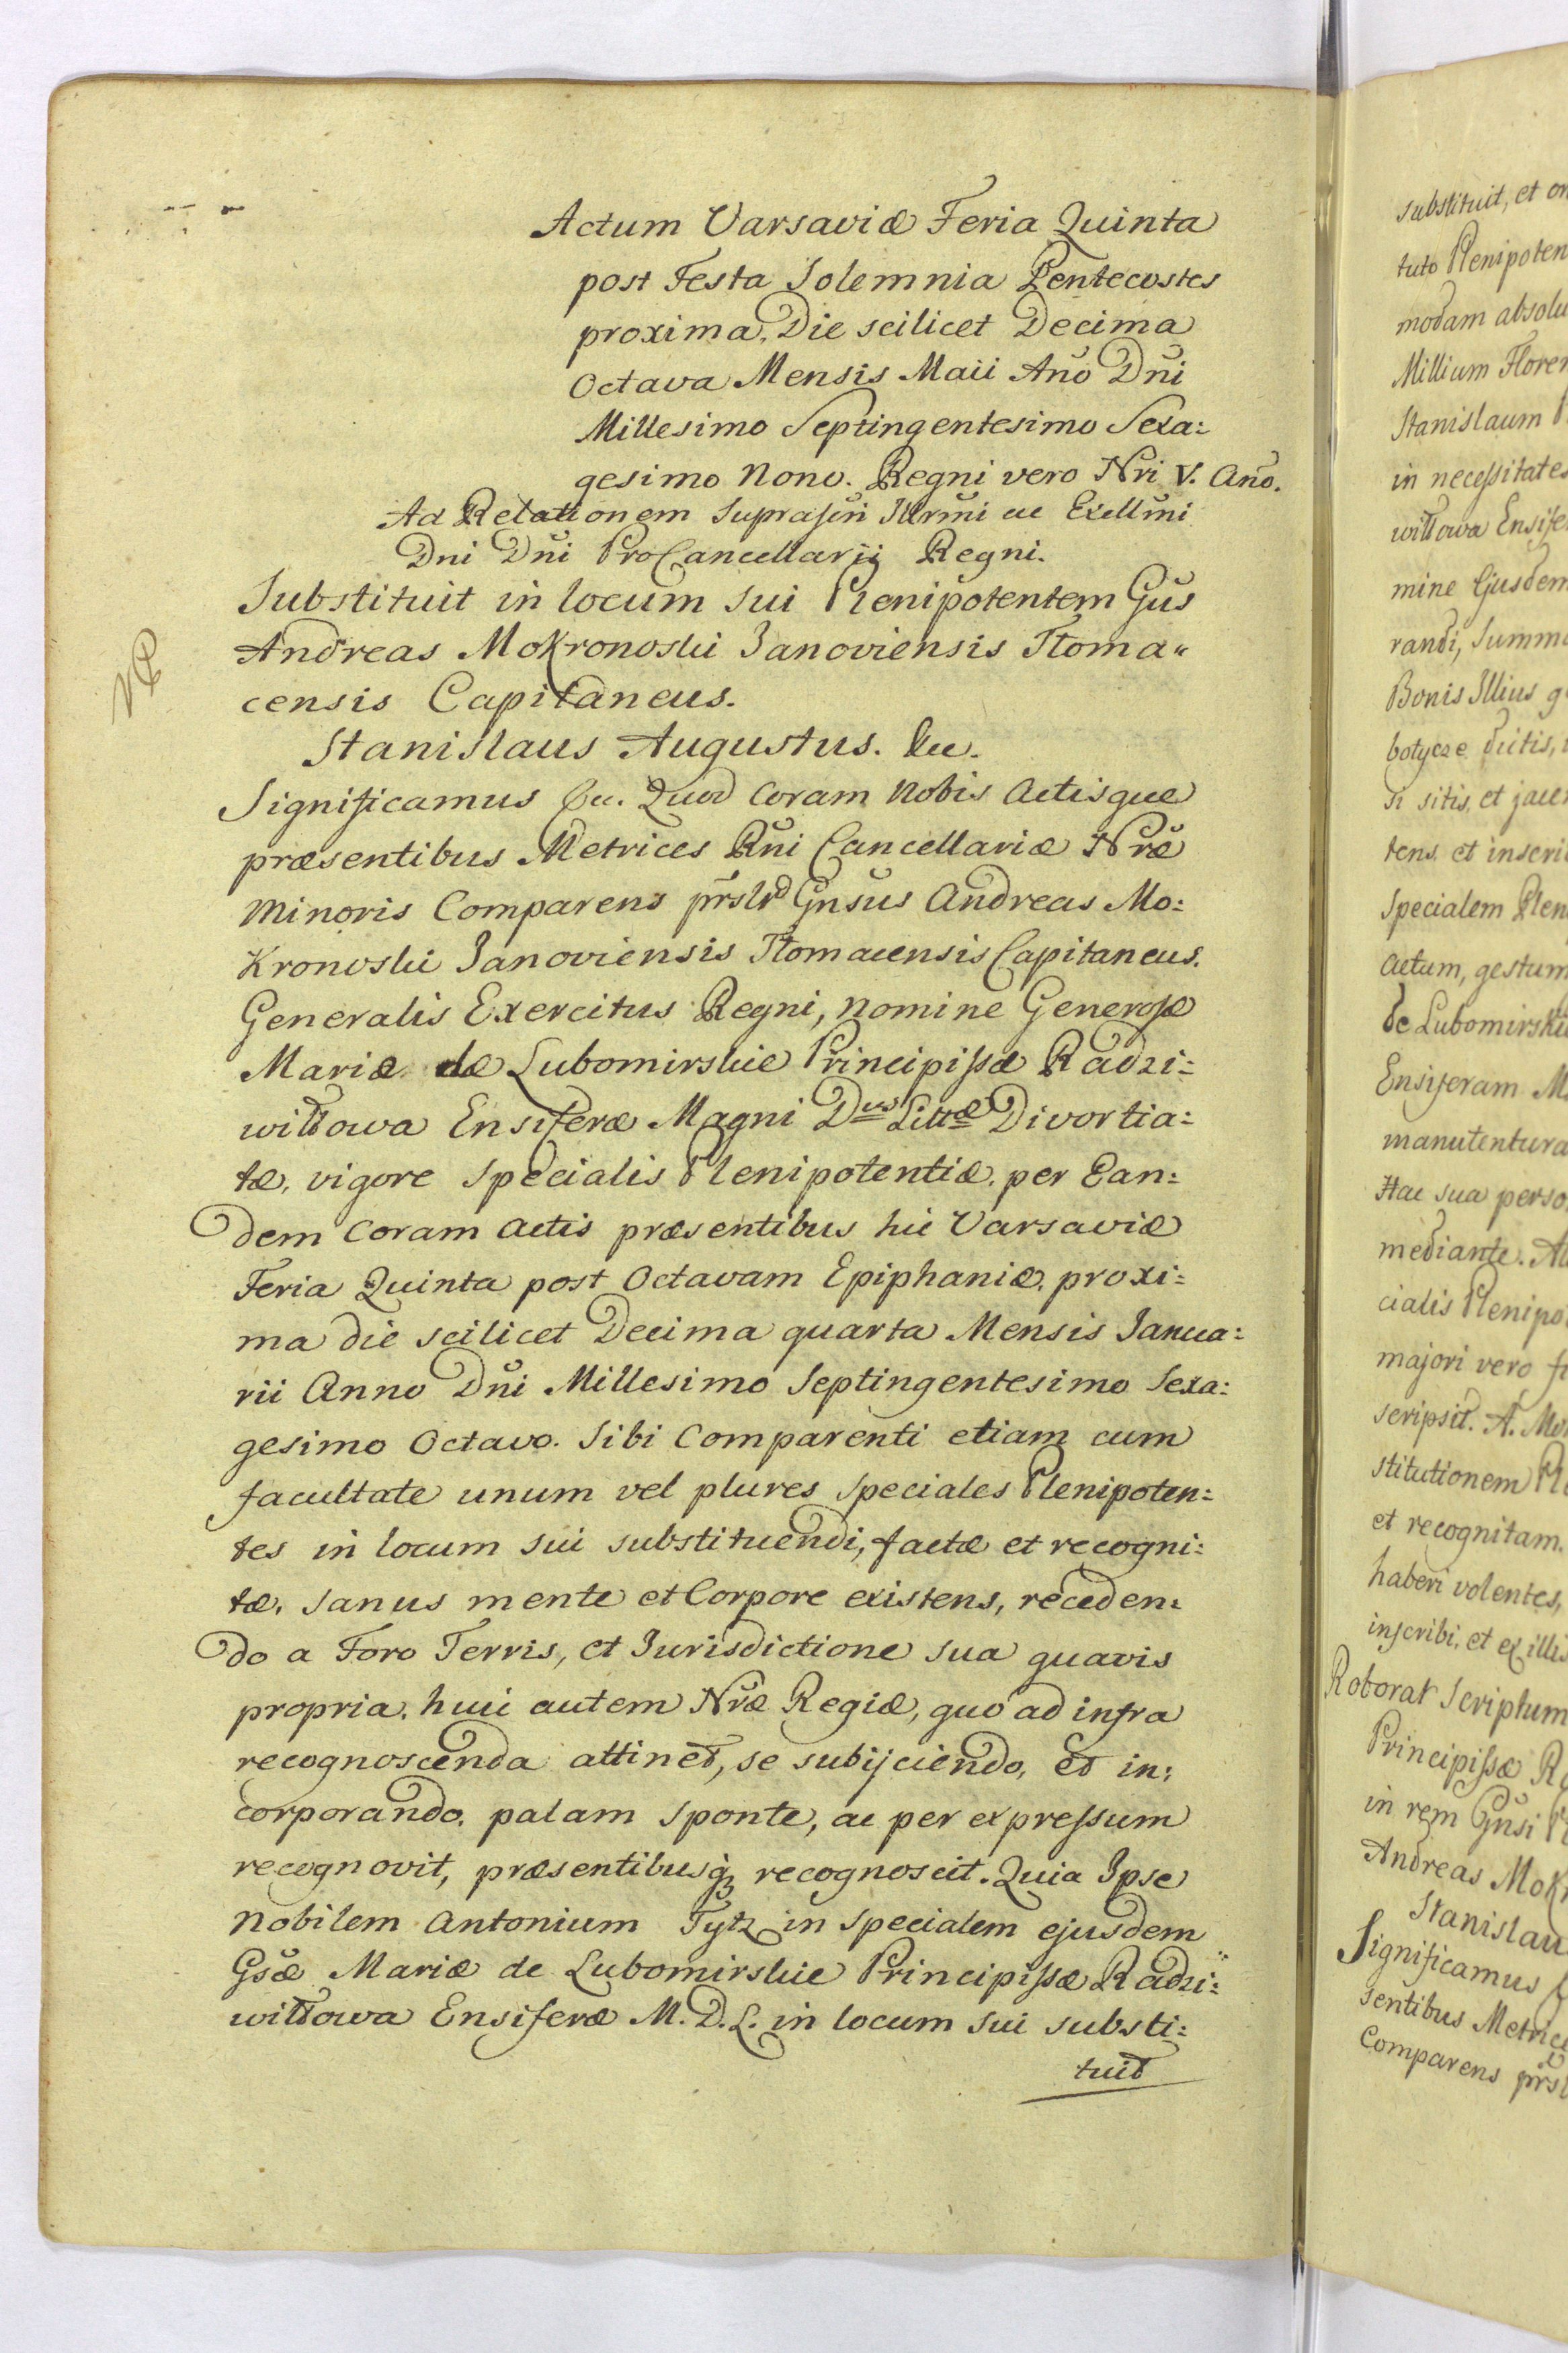 Actum Varsaviæ Feria Quinta
post Festa Solemnia Pentecostes
proxima, Die scilicet Decima
Octava Mensis Maii Año Dñi
Millesimo Septingentesimo Sexa:
gesimo Nono. Regni vero Nri V. Año.
Ad Relationem Suprascñ Illrmi ac Excllmi
Dni Dñi ProCancellarij Regni.
Substituit in locum sui Plenipotentem Gus
Andreas Mokronoski Janoviensis Tłoma=
censis Capitaneus.
Stanislaus Augustus. &c.
Significamus &c. Quod Coram Nobis Actisque
præsentibus Metrices Rñi Cancellariæ Nræ
Minoris Comparens prslr Gnsus Andreas Mo:
kronoski Janoviensis Tłomacensis Capitaneus.
Generalis Exercitus Regni, nomine Generosæ
Mariæ de Lubomirskie Principissæ Radzi:
wiłłowa Ensiferæ Magni Dus Littæ Divortia:
tæ, vigore specialis Plenipotentiæ, per Ean:
dem Coram Actis præsentibus hic Varsaviæ
Feria Quinta post Octavam Epiphaniæ, proxi:
ma die scilicet Decima quarta Mensis Janua:
rii Anno Dñi Millesimo Septingentesimo Sexa:
gesimo Octavo. Sibi Comparenti etiam cum
facultate unum vel plures speciales Plenipoten:
tes in locum sui substituendi, factæ et recogni:
tæ, sanus mente et Corpore existens, receden:
do a Foro Terris, et Jurisdictione sua quavis
propria, huic autem Nræ Regiæ, quo ad infra
recognoscenda attinet, se subijciendo, et in:
corporando, palam sponte, ac per expressum
recognovit, præsentibusq; recognoscit. Quia Ipse
Nobilem Antonium Tytz in specialem ejusdem
Gsæ Mariæ de Lubomirskie Principissæ Radzi:
wiłłowa Ensiferæ M. D. L. in locum sui substi:
tuit
substituit, et
tuto Plenipoten
modam absolu
Millium Floren
Stanislaum
in necessitates
wiłłowa Ensife
mine Ejusdem
randi, Summ
Bonis Illius
botycze dictis,
si sitis, et jacen
tens, et inscri
Specialem Plen
actum, gestum
de Lubomirski
Ensiferam M
manutentura
Hac sua perso
mediante. A
cialis Plenipo
majori vero
scripsit. A. Mo
stitutionem Pl
et recognitam.
haberi volentes,
inscribi, et ex illis
Roborat Scriptum
Principissæ R
in rem Gnsi
Andreas Mok
Stanislau
Significamus
sentibus Metrice
Comparens prsl